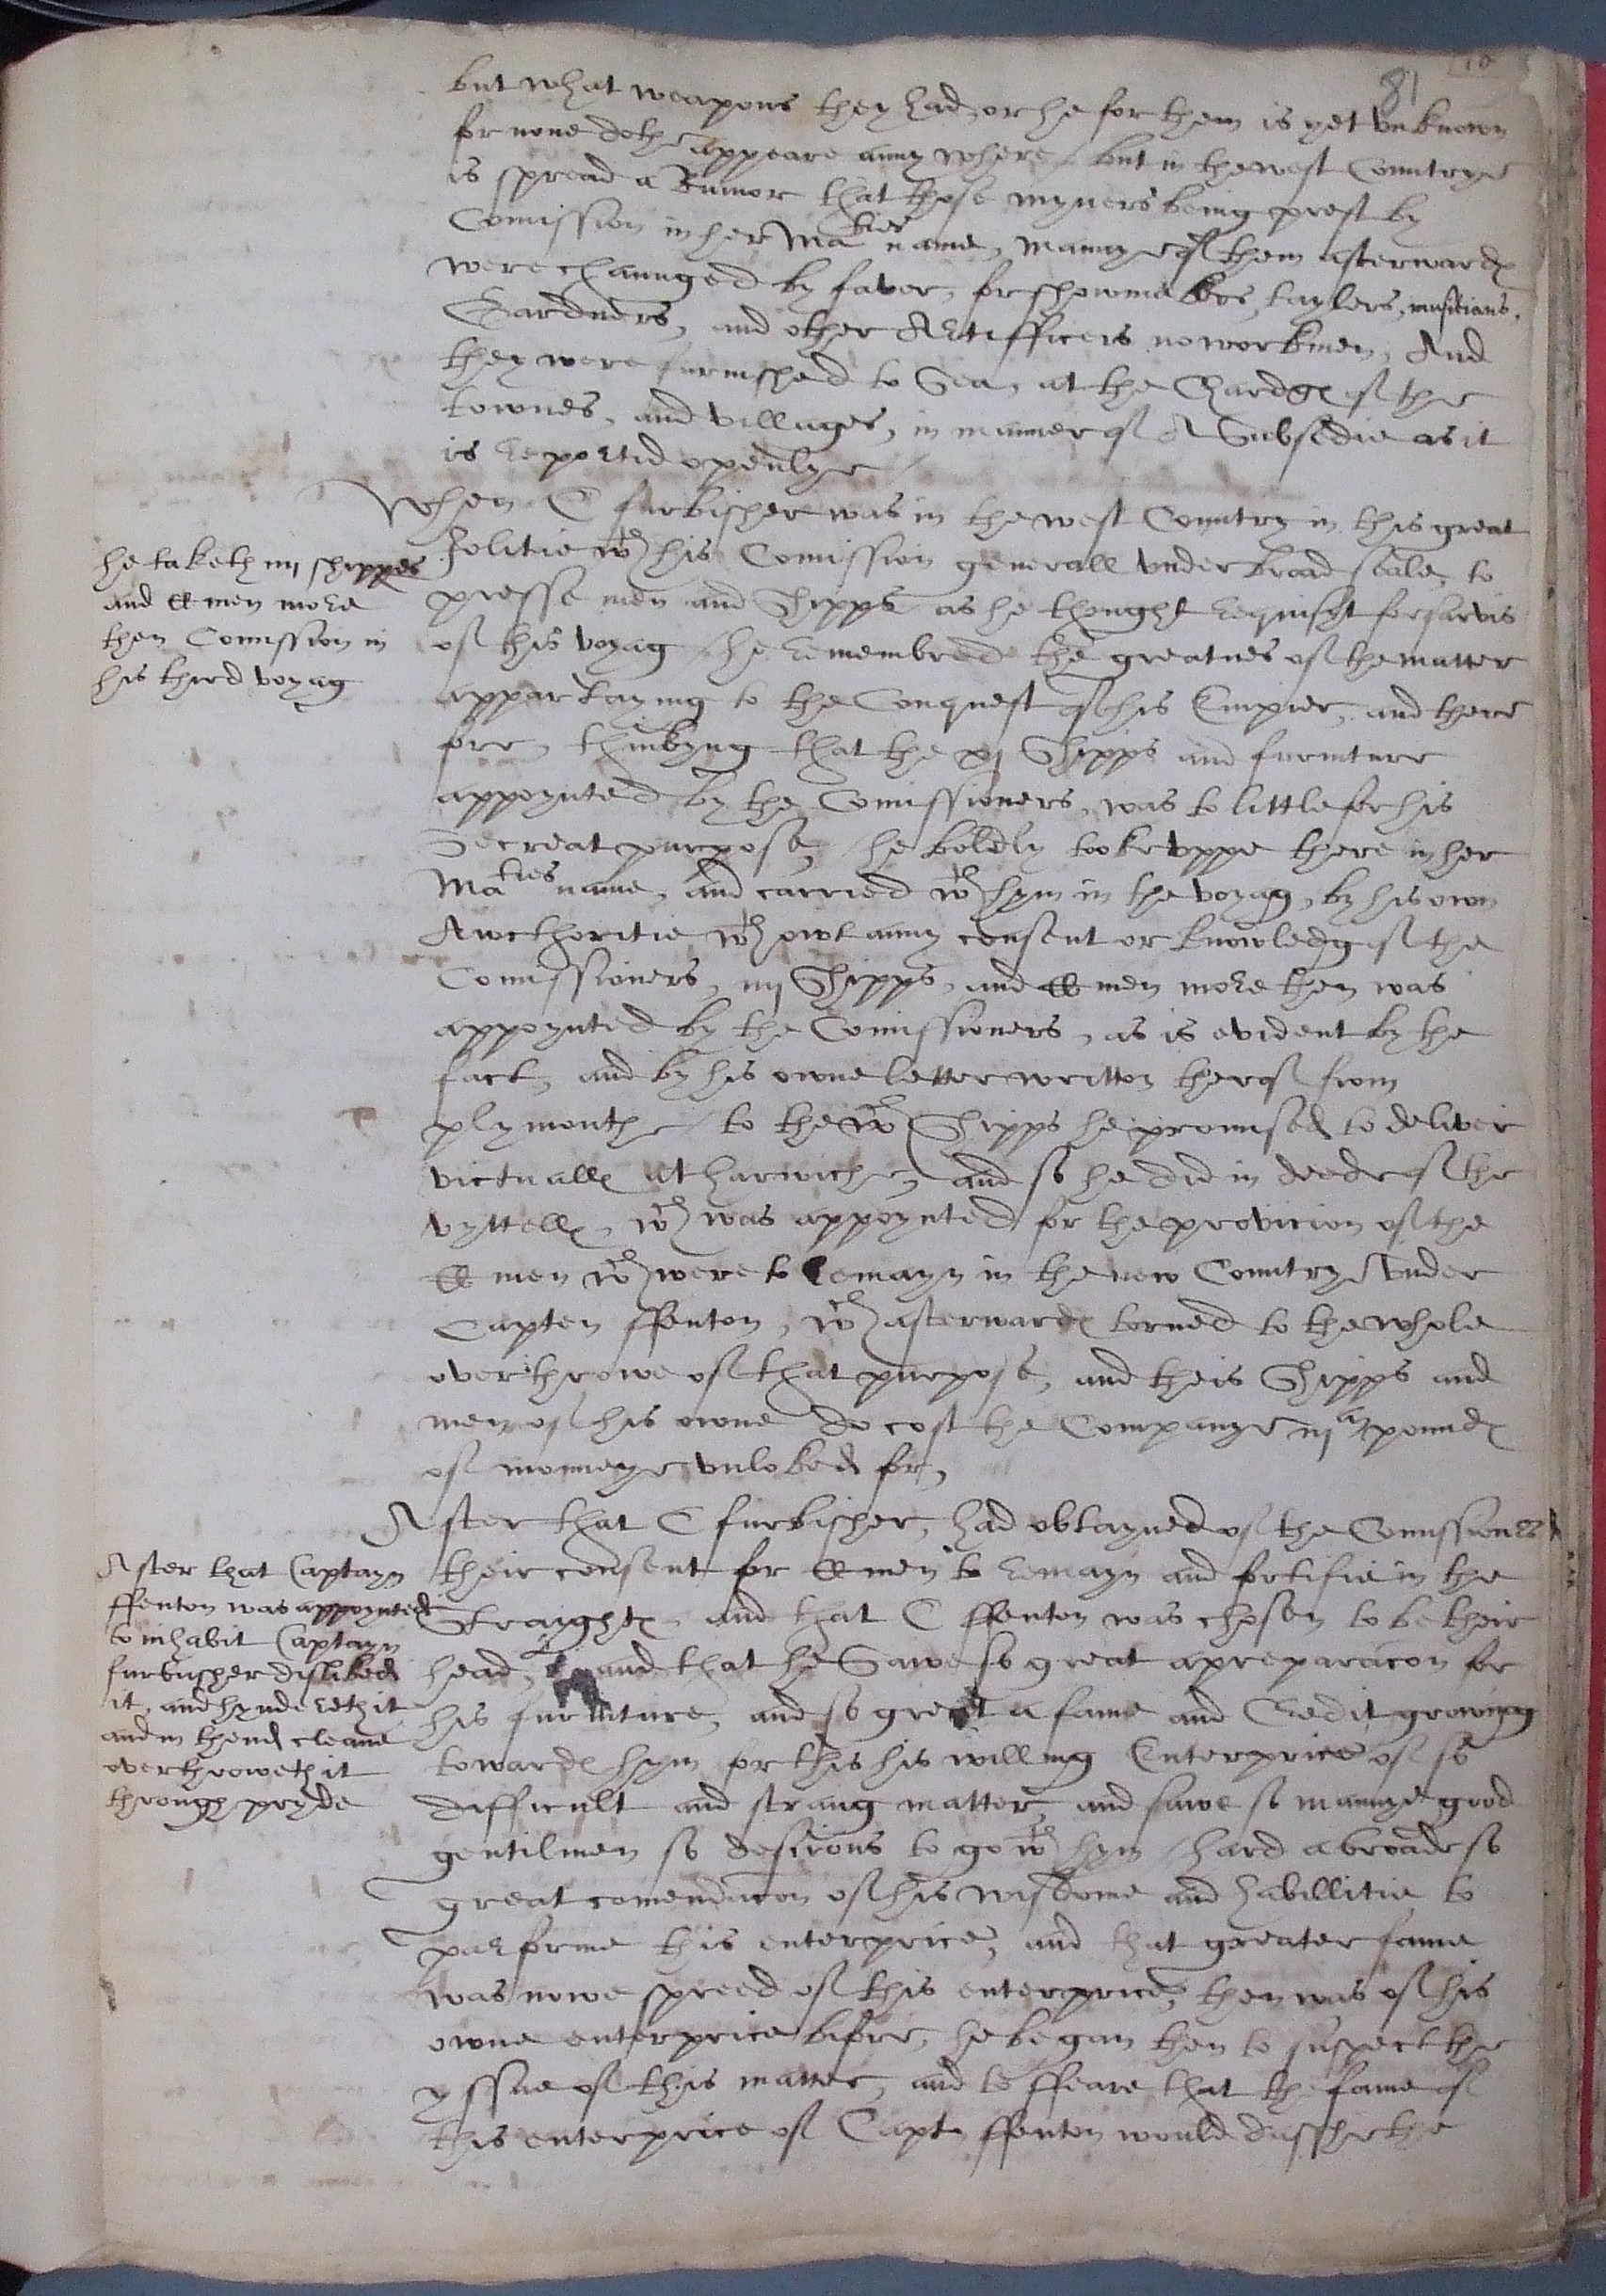 81
but what weapons they had, or he for them is yet vnknown
for none dothe appeare anny where. but in the west Countrye
is spread a Rumor that those myners being prest by
Comission in her Maties name, mannye of them afterwardes
were chaunged by faver, for showmakers, taylers, musitians,
Gardners, and other Artifficers no workmen, And
they were furnisshed to Sea, at the Chardges of the
townes, and villages, in manner of A Subsedie as it
is reportid openlye
When C furbisher was in the west Country in this great
he taketh iiij shippes
and C men more
then Comission in
his third voyag
Jolitie wth his Comission generall vnder broad seale, to
presse men and Shipps as he thought requisyt for sarvis
of this voyag / he remembred the greatnes of the matter
appartayning to the Conquest of his Empier, and there
fore, thinkyng that the xj Shipps and furniture
appoynted by the Comissioners, was to little for his
Secreat purpose, he boldly tooke vppe there in her
Maties name, and carried wth hym in the voyag, by his own
Awcthoritie wthowt anny consent or knowledg of the
Comissioners, iiij Shipps, and C men more then was
appoynted by the Comissioners, as is evident by the
fact, and by his owne letter written therof from
plymouthe / to the wch Shipps he promised to deliver
victualles at harwiche, and so he did in deede of the
vyttelles, wch was appoynted for the provicion of the
C men wch were to remayn in the new Countrye vnder
Capten ffenton, wch afterwardes torned to the whole
overthrowe of that purpose, and theis Shipps and
men of his owne do cost the Companye iij m poundes
of monneye vnloked for,
After that C furbisher, had obtayned of the Comissioners
After that Captayn
ffenton was appoynted
to inhabit Captayn
furbusher disliked
it, and hyndereth it
and in thend cleane
overthroweth it
through pryde
their consent for C men to remayn and fortifie in the
Straightes, and that C ffenton was chosen to be their
head, and that he Sawe so great a preparacon for
his furniture, and so great a fame and Credit growing
towardes hym for this his willing Enterprice of so
difficult and strang matter, and sawe so mannye good
gentilmen so desirous to go wth hym / hard abroade so
great comendacon of his wisdome and habillitie to
parforme this enterprice, and that greater fame
was nowe spreed of this enterprice, then was of his
owne enterprice bifore, he began then to suspect the
yssue of this matter, and to ffeare that the fame of
this enterprice of Capt. ffenton would dasshe the